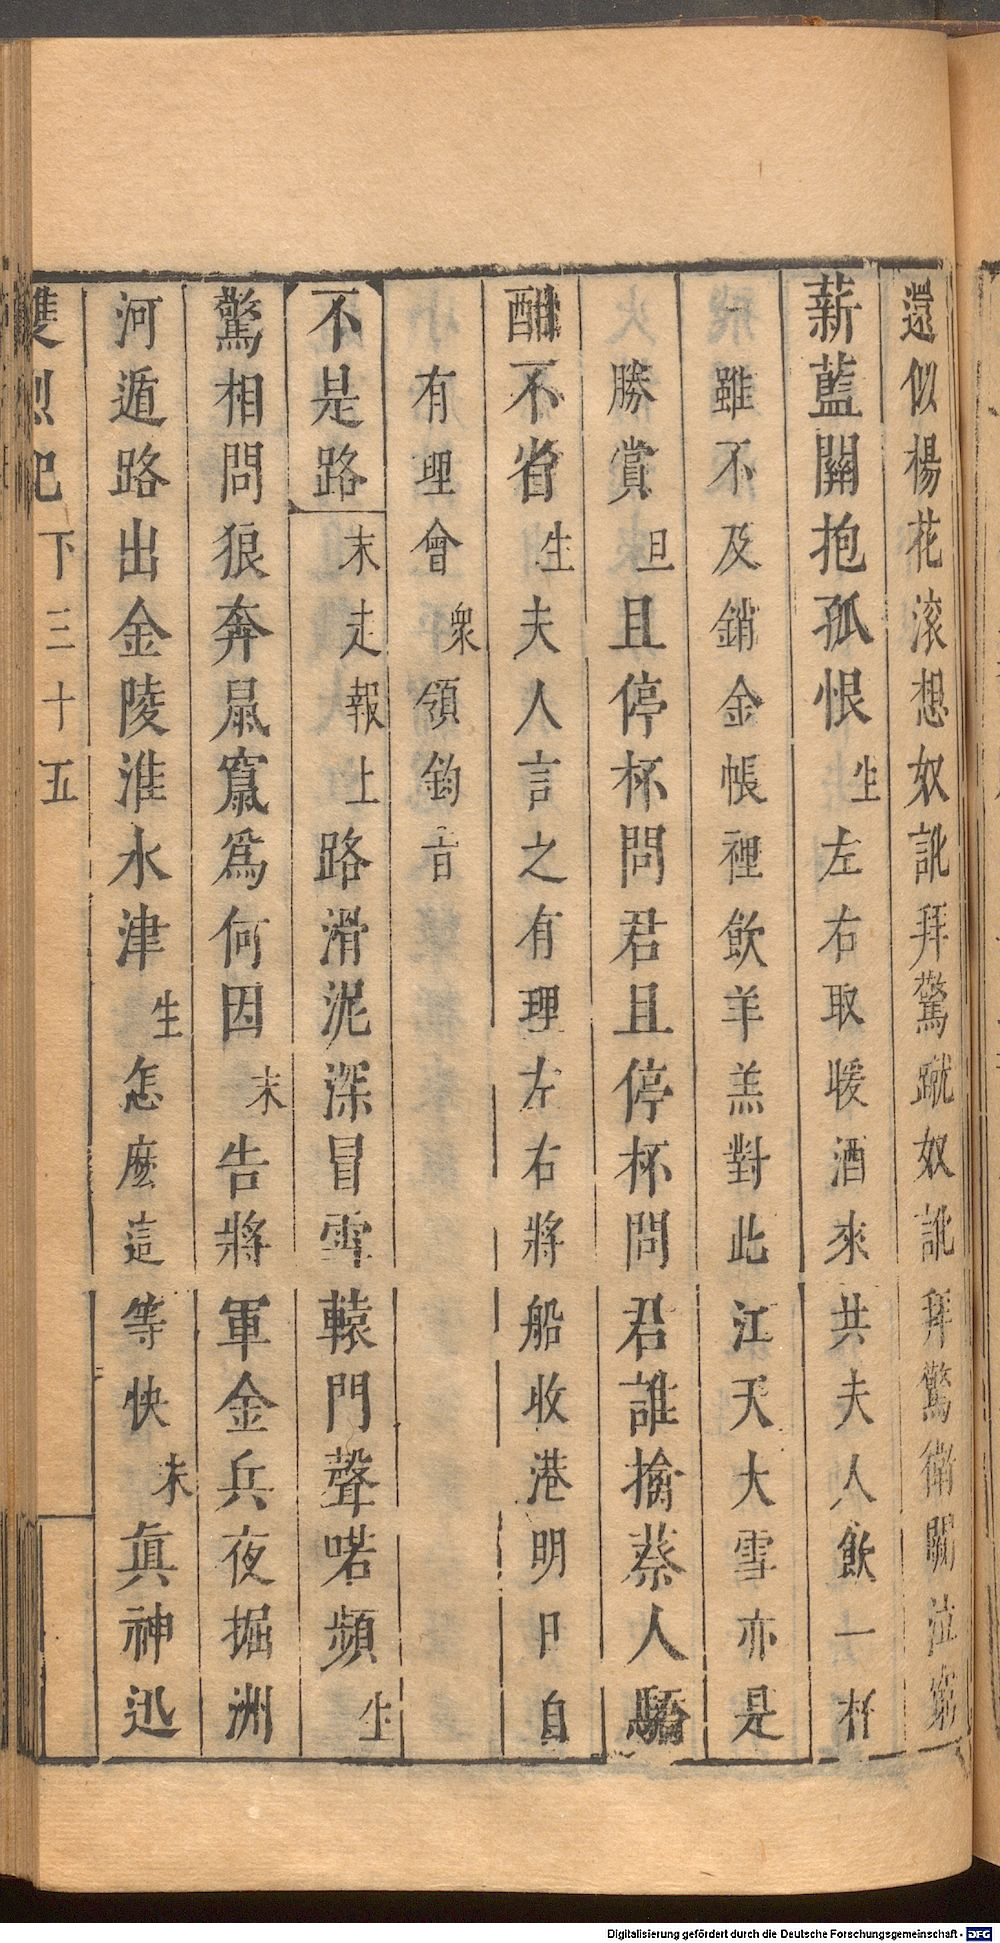 還似楊花滚想奴訛拜驚蹴奴訛拜驚衛關泣窮
薪藍關抱孤恨生左右取暖酒來共夫人飲一杯
雖不及銷金帳裡飲羊羔對此江天大雪亦是
勝賞旦且停杯問君且停杯問君誰擒蔡人驕
酣不省生夫人言之有理左右將船收港明日自
有理會衆領鈞音
不是路末走報上路滑泥深冒雪轅門聲喏頻生
驚相問狼奔鼠竄爲何因末告將軍金兵夜掘洲
河遁路出金陵淮水津生怎麽這等快末眞神迅
雙烈記 下三十五
Digitalisierung gefördert durch die Deutsche Forschungsgemeinschaft - DFG